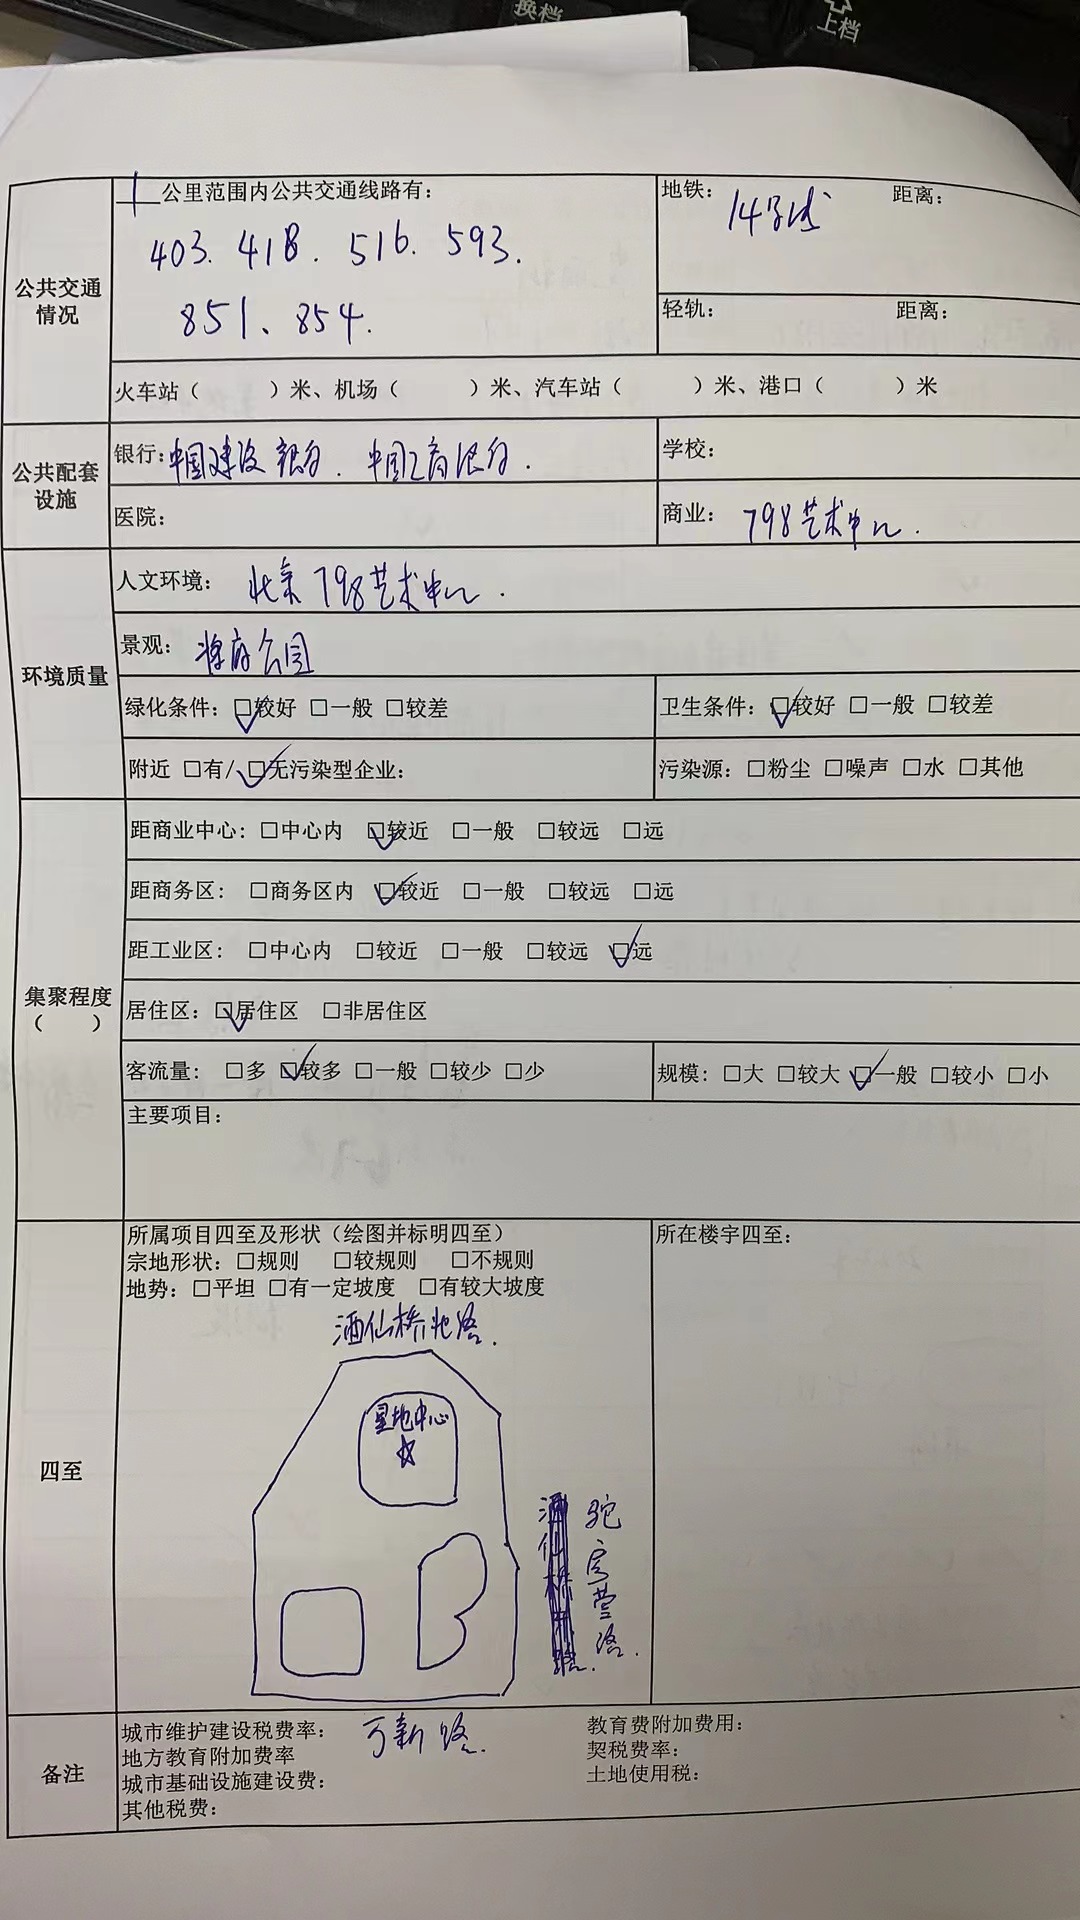 换档
上档
公共交通情况
1公里范围内公共交通线路有：
403. 418. 516. 593.
851、854.
地铁： 14号线 距离：
轻轨： 距离：
火车站（ ）米、机场（ ）米、汽车站（ ）米、港口（ ）米
公共配套设施
银行：中国建设银行. 中国工商银行.
学校：
医院：
商业： 798艺术中心.
环境质量
人文环境： 北京798艺术中心.
景观： 将府公园
绿化条件：☑较好 □一般 □较差
卫生条件：☑较好 □一般 □较差
附近 □有/☑无污染型企业：
污染源：□粉尘 □噪声 □水 □其他
集聚程度
（ ）
距商业中心：□中心内 ☑较近 □一般 □较远 □远
距商务区： □商务区内 ☑较近 □一般 □较远 □远
距工业区： □中心内 □较近 □一般 □较远 ☑远
居住区：☑居住区 □非居住区
客流量： □多 ☑较多 □一般 □较少 □少
规模：□大 □较大 ☑一般 □较小 □小
主要项目：
四至
所属项目四至及形状（绘图并标明四至）
宗地形状：□规则 □较规则 □不规则
地势：□平坦 □有一定坡度 □有较大坡度
所在楼宇四至：
酒仙桥北路.
星地中心
驼房营路.
万新路.
备注
城市维护建设税费率：
地方教育附加费率
城市基础设施建设费：
其他税费：
教育费附加费用：
契税费率：
土地使用税：